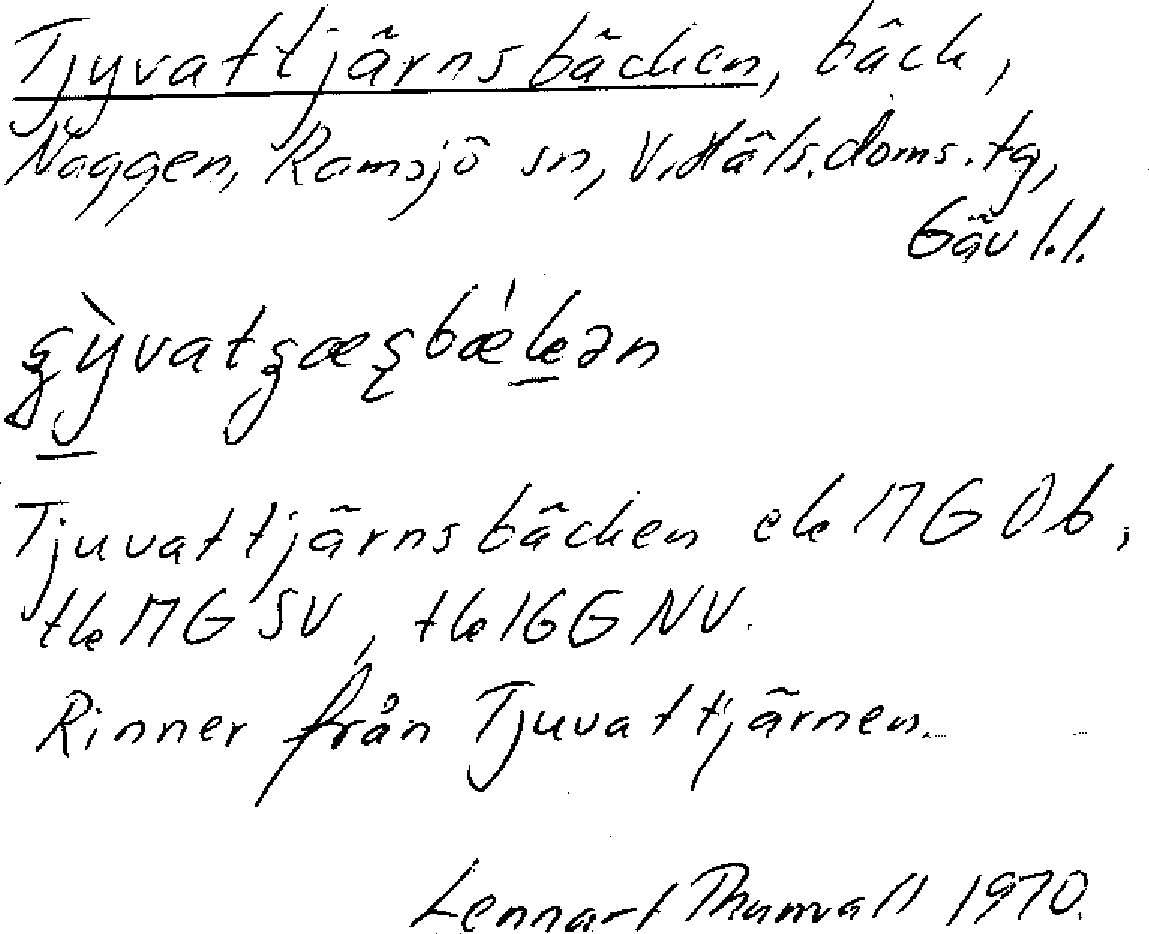 Tjyvattjärnsbäcken, bäck,
Naggen, Ramsjö sn, V.Häls.doms.tg,
Gäv l.l.
Tjuvattjärnsbäcken ek 17G Ob,
tk 17G SV, tk 16G NV.
Rinner från Tjuvattjärnen.
Lennart Thunvall 1970.